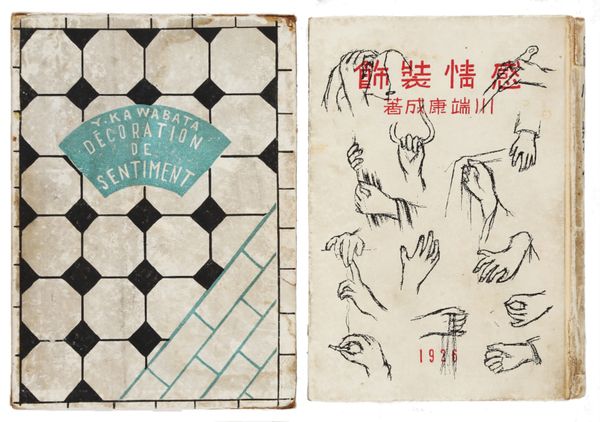 Y·KAWABATA
DÉCORATION
DE
SENTIMENT
感情裝飾
川端康成著
1926